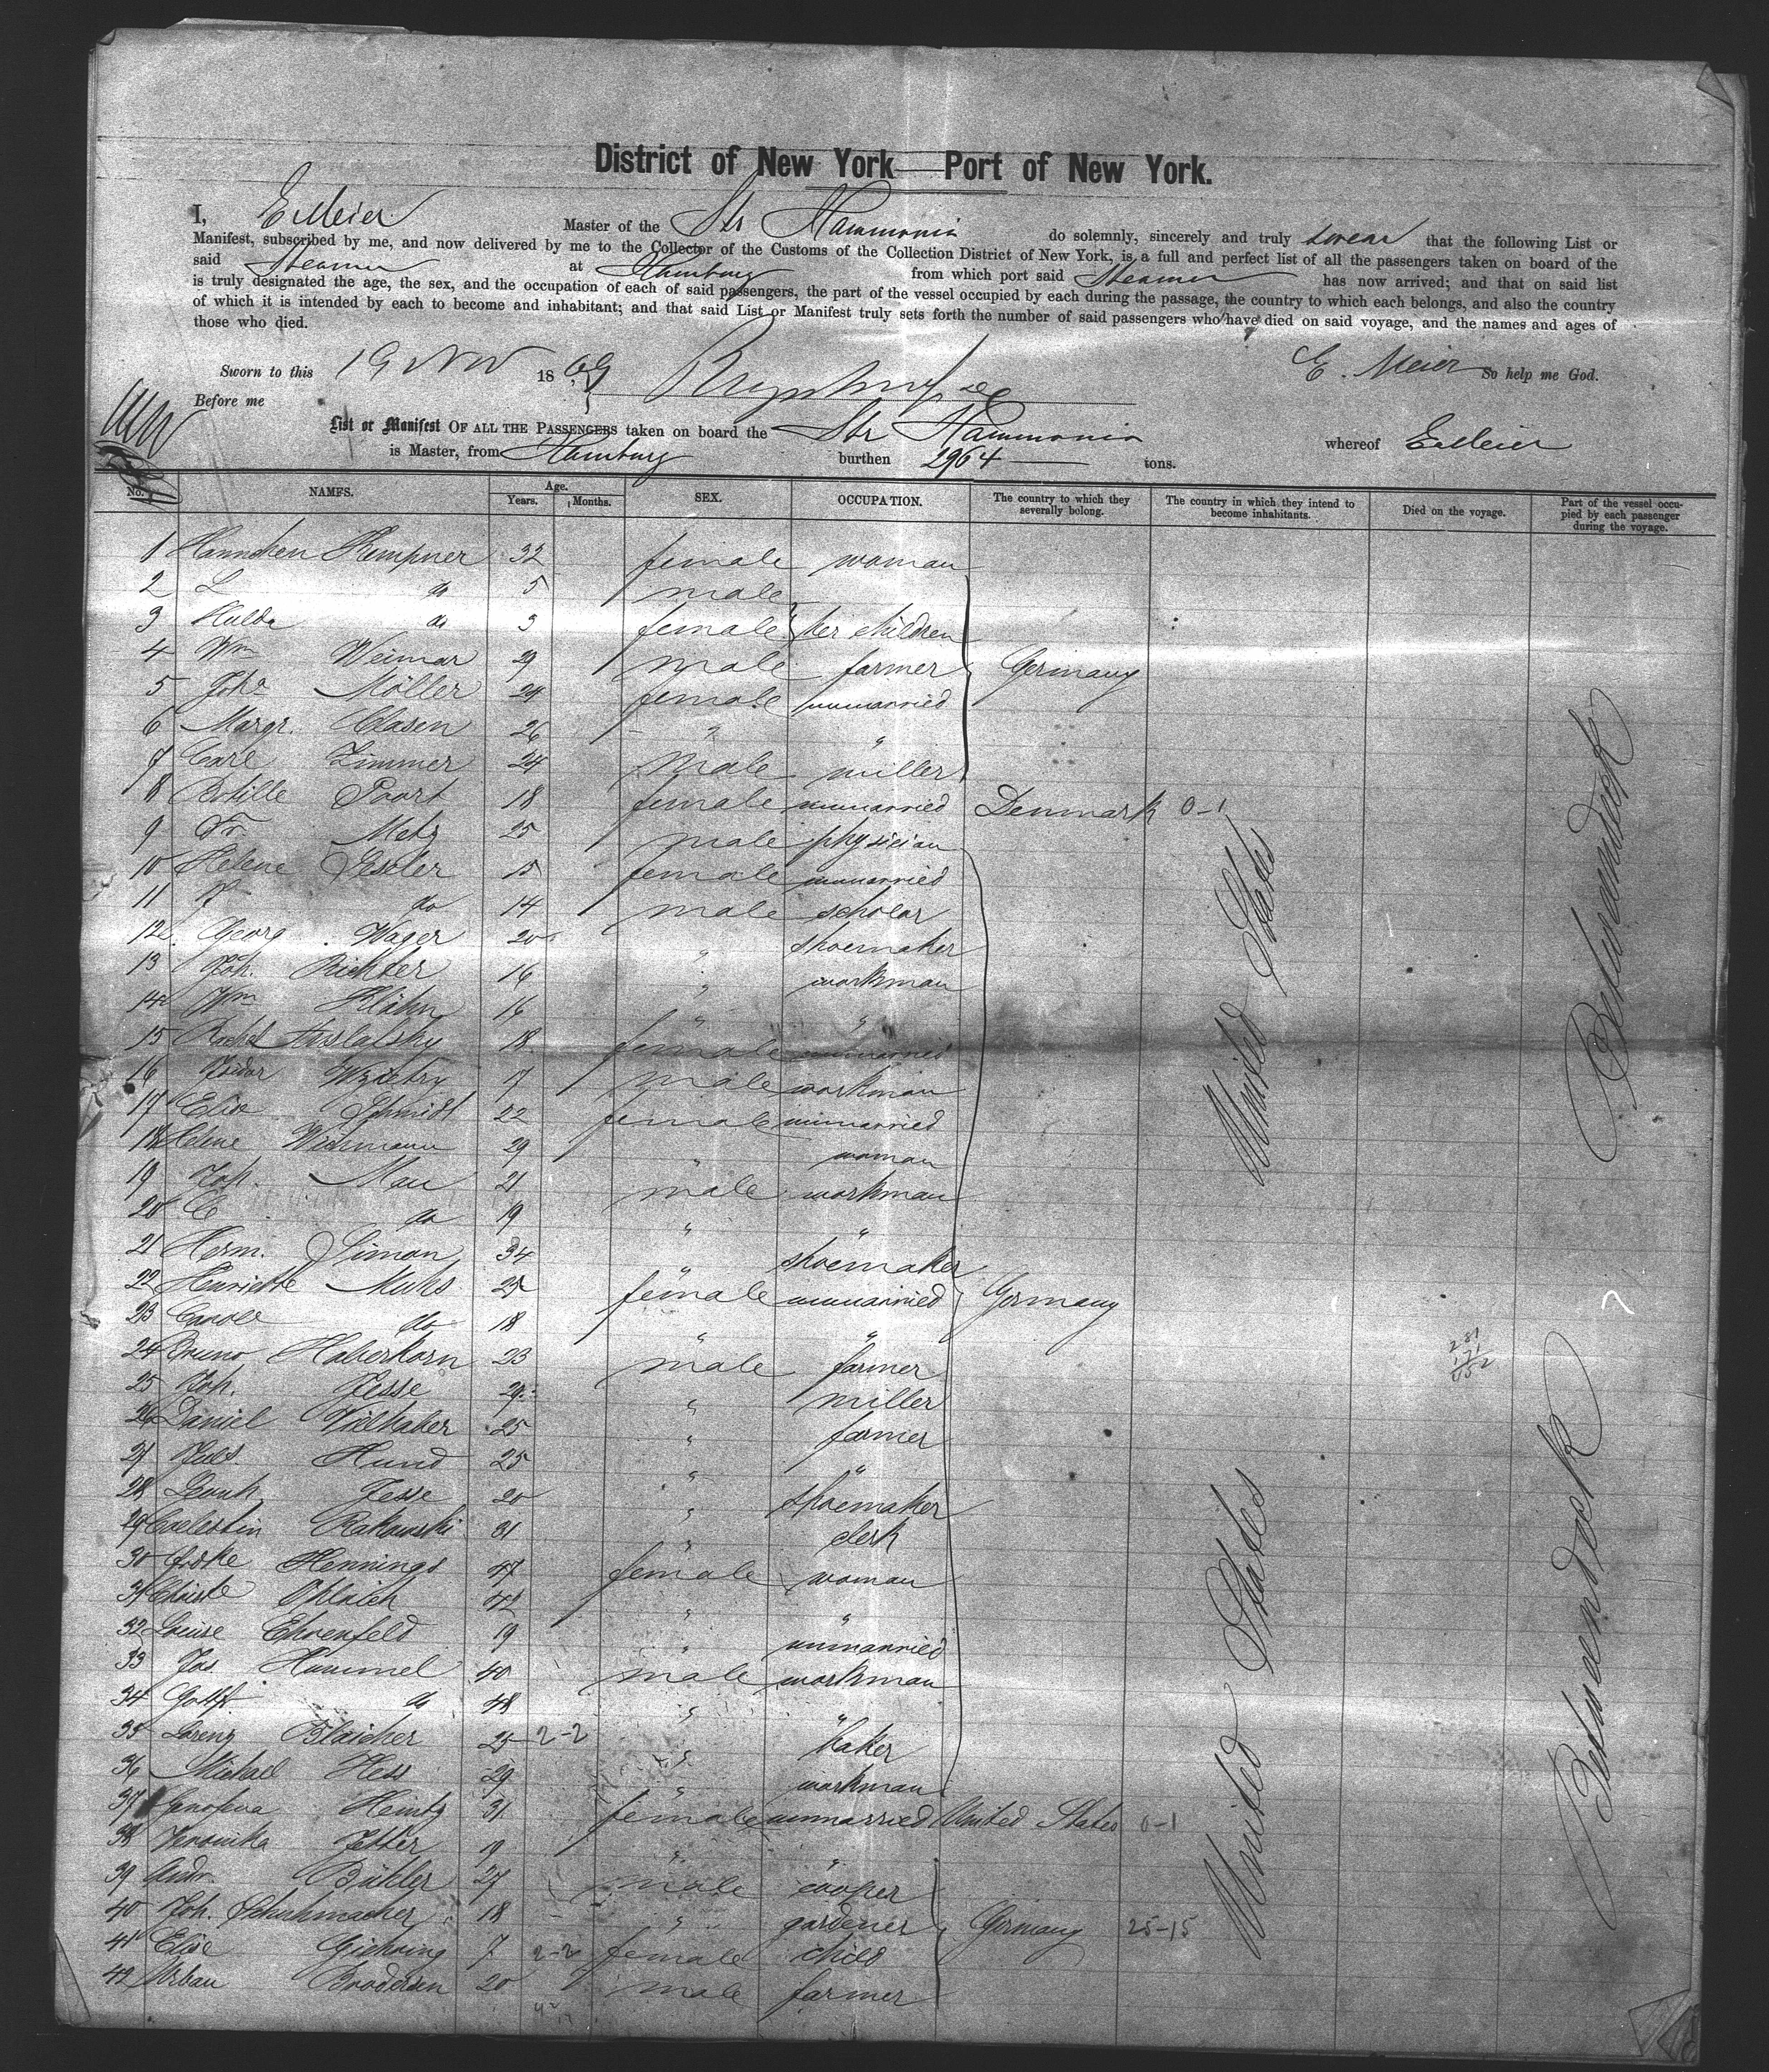 District of New York — Port of New York.
I, E. Meier Master of the Str Hammonia do solemnly, sincerely and truly swear that the following List or
Manifest, subscribed by me, and now delivered by me to the Collector of the Customs of the Collection District of New York, is a full and perfect list of all the passengers taken on board of the
said Steamer at Hamburg from which port said Steamer has now arrived; and that on said list
is truly designated the age, the sex, and the occupation of each of said passengers, the part of the vessel occupied by each during the passage, the country to which each belongs, and also the country
of which it is intended by each to become and inhabitant; and that said List or Manifest truly sets forth the number of said passengers who have died on said voyage, and the names and ages of
those who died.
Sworn to this 19 Nov 1869 E. Meier So help me God.
Before me
List or Manifest OF ALL THE PASSENGERS taken on board the Str Hammonia whereof E. Meier
is Master, from Hamburg burthen 2964 tons.
No. NAMES. Age. Years. Months. SEX. OCCUPATION. The country to which they severally belong. The country in which they intend to become inhabitants. Died on the voyage. Part of the vessel occupied by each passenger during the voyage.
1 Hannchen Kempner 32 female woman
2 L do 5 male
3 Hulda do 3 female her children
4 Wm Weimar 29 male farmer Germany
5 Joha Möller 24 female unmarried
6 Margr. Clasen 26 " "
7 Carl Zimmer 24 male miller
8 Botille Poort 18 female unmarried Denmark 0-1
9 Fr. Metz 25 male physician
10 Helene 15 female unmarried
11 do 14 male scholar
12 Georg Wager 20 " shoemaker
13 Joh. Richter 16 " workman
14 Wm Klähn 16 " "
15 Rachel 18 female unmarried
16 Isidor 17 male workman
17 Elise Schmidt 22 female unmarried
18 Helene Wichmann 29 " woman
19 Joh. Mau 21 male workman
20 C do 19 " "
21 Herm. Simon 34 " shoemaker
22 Henriette Muhs 25 female unmarried Germany
23 Carole do 18 " "
24 Bruno Haberkorn 23 male farmer
25 Joh. Jesse 29 " miller
26 Daniel Vielhaber 25 " farmer
27 Juls. Hund 25 " "
28 Leonh. Jesse 20 " shoemaker
29 Coelestin Rakowski 31 " clerk
30 Hennings 47 female woman
31 Christe 42 " "
32 Louise Ehrenfeld 19 " unmarried
33 Jos. Hummel 40 male workman
34 Gottfr. do 48 " "
35 Lorenz Blaicher 25 2-2 " baker
36 Michael Hess 29 " workman
37 Genofeva Heintz 31 female unmarried United States 0-1
38 Veronika Jetter 19 " "
39 Andr. Bühler 27 male cooper
40 Joh. Schuhmacher 18 " gardener Germany 25-15
41 Elise Giehring 7 2-2 female child
42 Urban Brodersen 20 male farmer
United States
United States
Betweendeck
Betweendeck